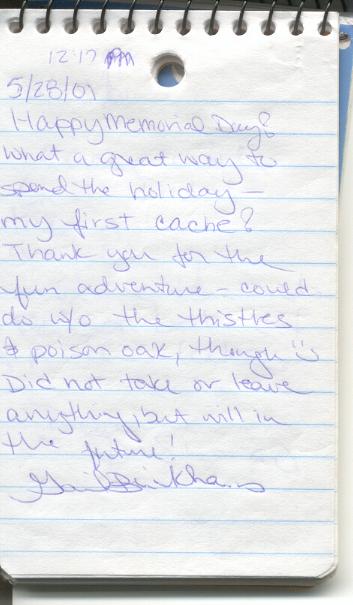 12:17 PM
5/28/01
Happy Memorial Day!
What a great way to
spend the holiday –
my first cache!
Thank you for the
fun adventure – could
do w/o the thistles
& poison oak, though :)
Did not take or leave
anything, but will in
the future!
Gail